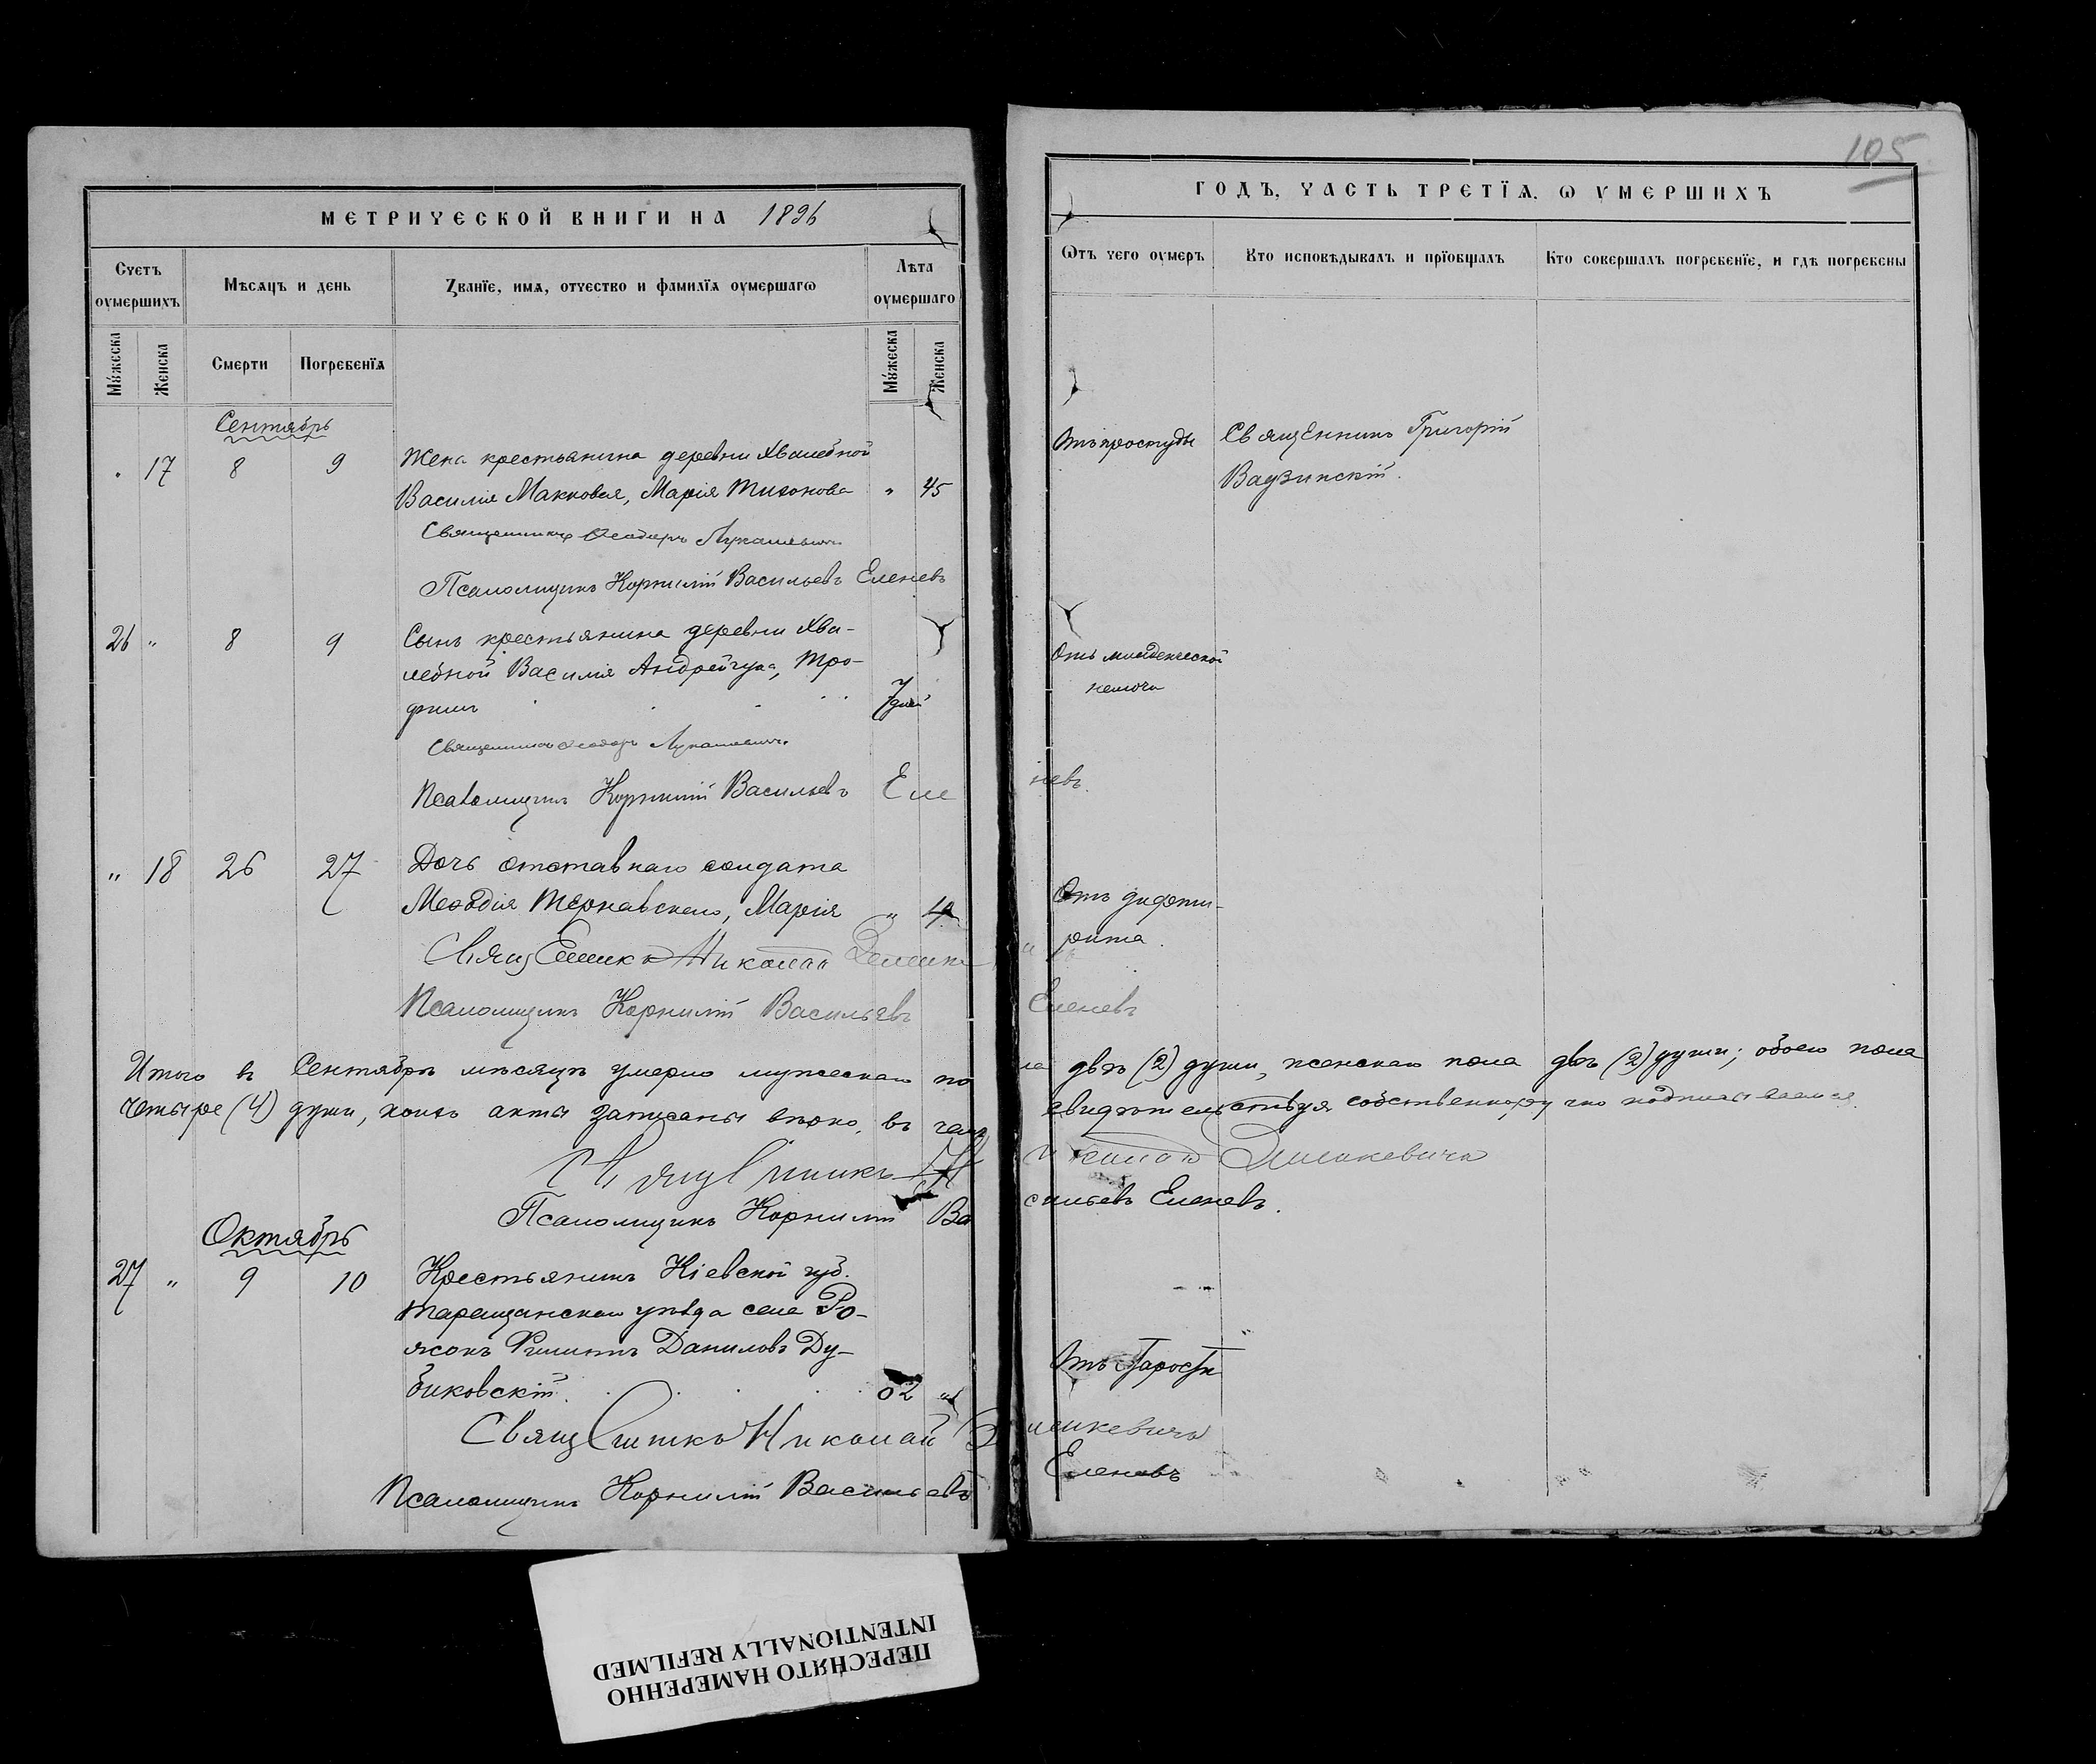 105
МЕТРИЧЕСКОЙ КНИГИ НА 1896
ГОДЪ, ЧАСТЬ ТРЕТЇѦ, Ѡ УМЕРШИХЪ
Счетъ оумершихъ
Мѣсѧцъ и день
Званїе, имѧ, отчество и фамилїѧ оумершагѡ
Лѣта оумершаго
Мужеска
Женска
Смерти
Погребенїѧ
Мужеска
Женска
Ѿтъ чего оумеръ
Кто исповѣдывалъ и прїобщалъ
Кто совершалъ погребенїе, и гдѣ погребены
Сентябрь
" 17 8 9 Жена крестьянина деревни Хвалебной
Василія Марія Тихонова " 45
Отъ простуды
Священникъ Григорій
Священникъ Ѳеодоръ Лукашевичъ
Псаломщикъ Корнилій Васильевъ Еленевъ
26 " 8 9 Сынъ крестьянина деревни Хва-
лебной Василія Андрейчука, Тро-
фимъ 7 дней
Отъ младенческой
немочи
Священникъ Ѳеодоръ Лукашевичъ
Псаломщикъ Корнилій Васильевъ Еленевъ
" 18 26 27 Дочь отставнаго солдата
Меѳодія Терновскаго, Марія " 4
Отъ дифте-
рита
Священникъ Николай
Псаломщикъ Корнилій Васильевъ Еленевъ
Итого въ Сентябрѣ мѣсяцѣ умерло мужескаго пола двѣ (2) души, женскаго пола двѣ (2) души; обоего пола
четыре (4) души, коихъ акты записаны вѣрно, въ чемъ свидѣтельствуя собственноручно подписываемся
Священникъ Николай
Псаломщикъ Корнилій Васильевъ Еленевъ.
Октябрь
27 " 9 10 Крестьянинъ Кіевской губ.
Таращанскаго уѣзда села Ро-
жокъ Филиппъ Даниловъ Ду-
биковскій "
Отъ старости
Священникъ Николай
Псаломщикъ Корнилій Васильевъ Еленевъ
ПЕРЕСНЯТО НАМЕРЕННО
INTENTIONALLY REFILMED